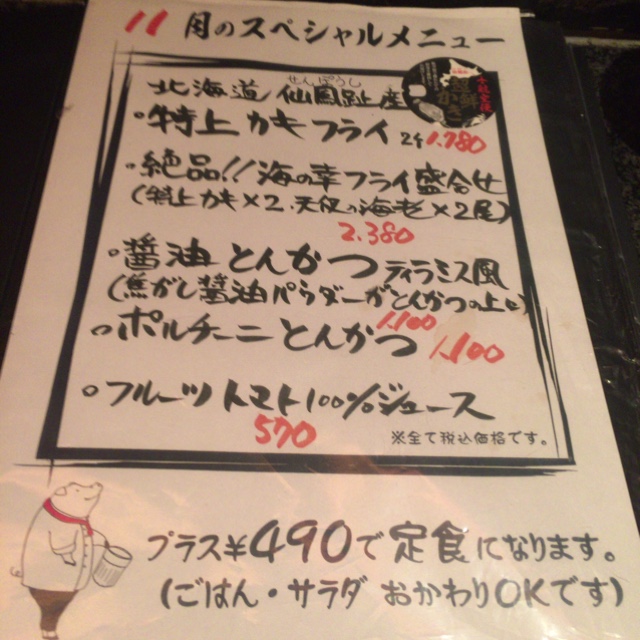 11月のスペシャルメニュー
せんぽうし
北海道 仙鳳趾産
・特上カキフライ 2ケ 1.780
・絶品!!海の幸フライ盛合せ
(特上カキ×2、天使の海老×2尾)
2.380
・醤油とんかつ ティラミス風
(焦がし醤油パウダーがとんかつの上に)
1.100
・ポルチーニとんかつ 1.100
・フルーツトマト100%ジュース
570
※全て税込価格です。
プラス¥490で定食になります。
(ごはん・サラダ おかわりOKです)